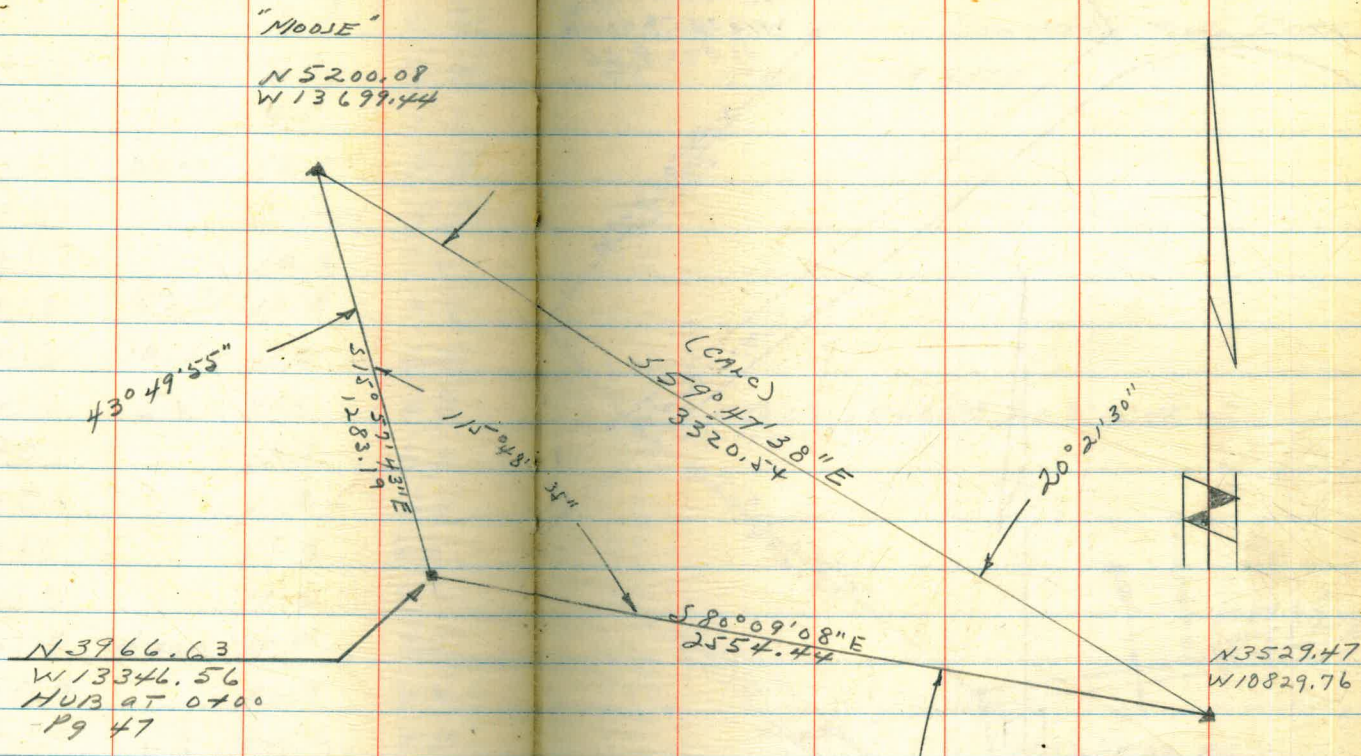 "MOOSE"
N 5200.08
W 13699.44
43° 49' 55"
S 15° 57' 43" E
1283.19
115° 48' 35"
(CALC)
S 59° 47' 38" E
3320.54
20° 21' 30"
S 80° 09' 08" E
2554.44
N 3966.63
W 13346.56
HUB AT 0+00
Pg 47
N 3529.47
W 10829.76